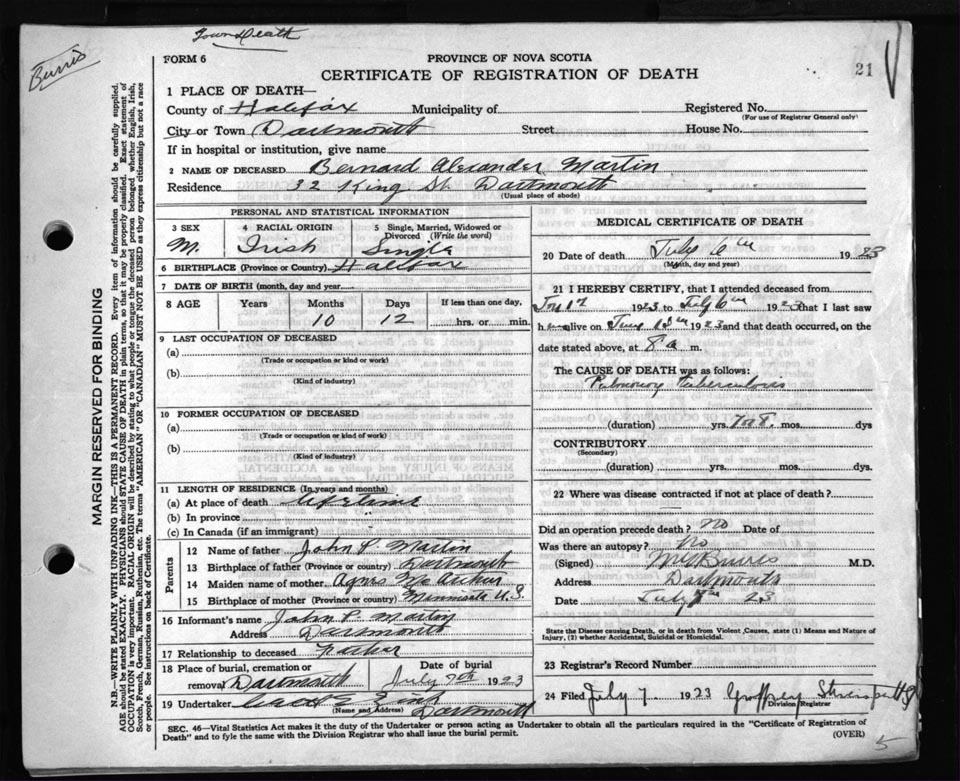 Town Death
Burris
FORM 6
PROVINCE OF NOVA SCOTIA
CERTIFICATE OF REGISTRATION OF DEATH
21
1 PLACE OF DEATH—
County of Halifax Municipality of Registered No.
(For use of Registrar General only)
City or Town Dartmouth Street House No.
If in hospital or institution, give name
2 NAME OF DECEASED Bernard Alexander Martin
Residence 32 King St. Dartmouth
(Usual place of abode)
PERSONAL AND STATISTICAL INFORMATION
3 SEX 4 RACIAL ORIGIN 5 Single, Married, Widowed or
Divorced (Write the word)
M. Irish Single
6 BIRTHPLACE (Province or Country) Halifax
7 DATE OF BIRTH (month, day and year)
8 AGE Years Months Days If less than one day,
10 12 hrs. or min.
9 LAST OCCUPATION OF DECEASED
(a)
(Trade or occupation or kind or work)
(b)
(Kind of industry)
10 FORMER OCCUPATION OF DECEASED
(a)
(Trade or occupation or kind of work)
(b)
(Kind of industry)
11 LENGTH OF RESIDENCE (In years and months)
(a) At place of death Lifetime
(b) In province
(c) In Canada (if an immigrant)
Parents
12 Name of father John P. Martin
13 Birthplace of father (Province or country) Dartmouth
14 Maiden name of mother Agnes McArthur
15 Birthplace of mother (Province or country) Minnisota U.S.
16 Informant's name John P. Martin
Address Dartmouth
17 Relationship to deceased Father
18 Place of burial, cremation or Date of burial
removal Dartmouth July 7th 1923
19 Undertaker
(Name and Address) Dartmouth
MEDICAL CERTIFICATE OF DEATH
20 Date of death July 6th 1923
(Month, day and year)
21 I HEREBY CERTIFY, that I attended deceased from
1923 to July 6th 1923 that I last saw
h alive on 1923 and that death occurred, on
the date stated above, at 8 a m.
The CAUSE OF DEATH was as follows:
Pulmonary Tuberculosis
(duration) yrs. mos. dys
CONTRIBUTORY
(Secondary)
(duration) yrs. mos. dys
22 Where was disease contracted if not at place of death?
Did an operation precede death? No Date of
Was there an autopsy? No
(Signed) Burris M.D.
Address Dartmouth
Date July 7th 23
State the Disease causing Death, or in death from Violent Causes, state (1) Means and Nature of
Injury, (2) whether Accidental, Suicidal or Homicidal.
23 Registrar's Record Number
24 Filed July 7 1923
Division Registrar
SEC. 46—Vital Statistics Act makes it the duty of the Undertaker or person acting as Undertaker to obtain all the particulars required in the "Certificate of Registration of
Death" and to fyle the same with the Division Registrar who shall issue the burial permit.
(OVER)
5
MARGIN RESERVED FOR BINDING
N.B.—WRITE PLAINLY WITH UNFADING INK—THIS IS A PERMANENT RECORD. Every item of information should be carefully supplied.
AGE should be stated EXACTLY. PHYSICIANS should STATE CAUSE OF DEATH in plain terms, so that it may be properly classified. Exact statement of
OCCUPATION is very important. RACIAL ORIGIN will be described by stating to what people or tongue the deceased person belonged whether English, Irish,
Scotch, French, German, Russian, Ruthenian, etc. The terms "AMERICAN" OR "CANADIAN" MUST NOT BE USED as they express citizenship but not a race
or people. See instructions on back of Certificate.